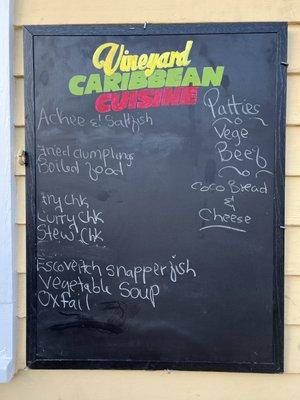 Vineyard
CARIBBEAN
CUISINE
Ackee & Saltfish
Fried dumpling
Boiled food
Fry Chk
Curry Chk
Stew Chk
Escoveitch snapper fish
Vegetable Soup
Oxtail
Patties
Vege
Beef
Coco Bread
&
Cheese